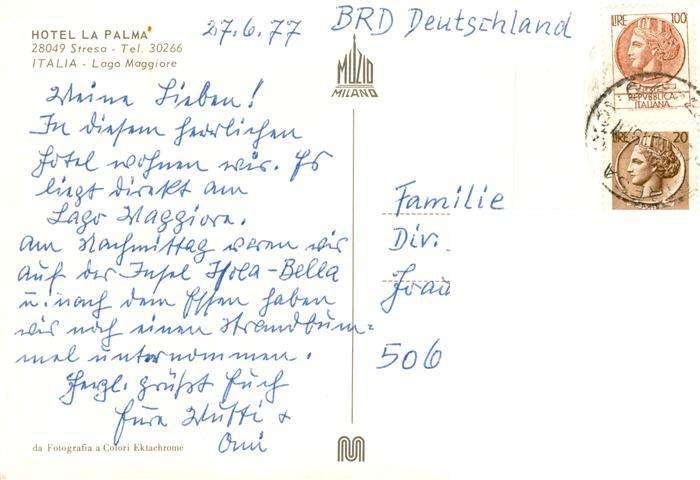 HOTEL LA PALMA
28049 Stresa - Tel. 30266
ITALIA - Lago Maggiore
27.6.77
BRD Deutschland
MUZIO
MILANO
LIRE 100
REPUBBLICA
ITALIANA
LIRE 20
Meine Lieben!
In diesem herrlichen
Hotel wohnen wir. Es
liegt direkt am
Lago Maggiore.
Am Nachmittag waren wir
auf der Insel Isola-Bella
u. nach dem Essen haben
wir noch einen Strandbum=
mel unternommen.
Herzl. grüßt Euch
Eure Mutti &
Omi
Familie
Div.
Frau
506
da Fotografia a Colori Ektachrome